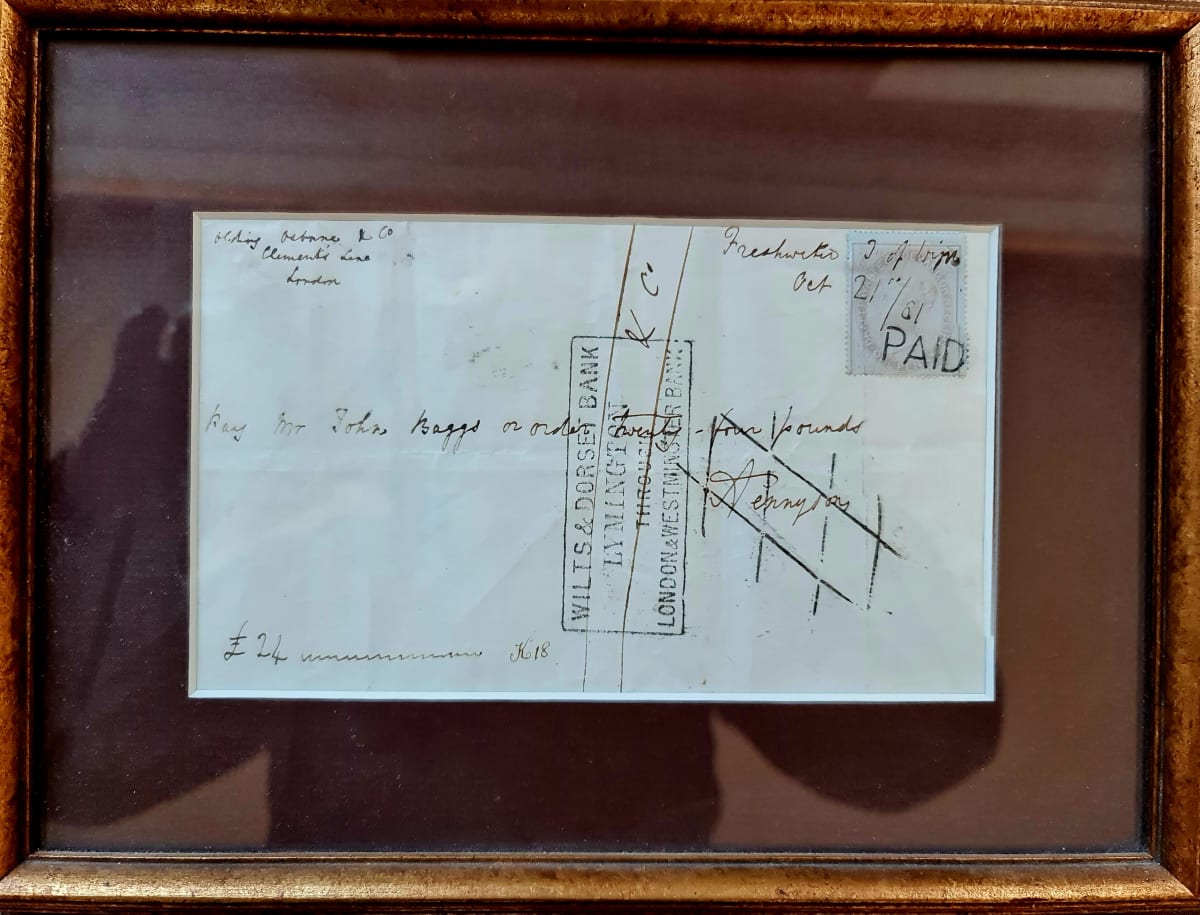 Olding Osborne & Co
Clement's Lane
London
Freshwater I of Wight
Oct 21st/61
PAID
& Co
Pay Mr John Baggs or order twenty-four pounds
A Tennyson
WILTS & DORSET BANK
LYMINGTON
THROUGH
LONDON & WESTMINSTER BANK
£24
K18